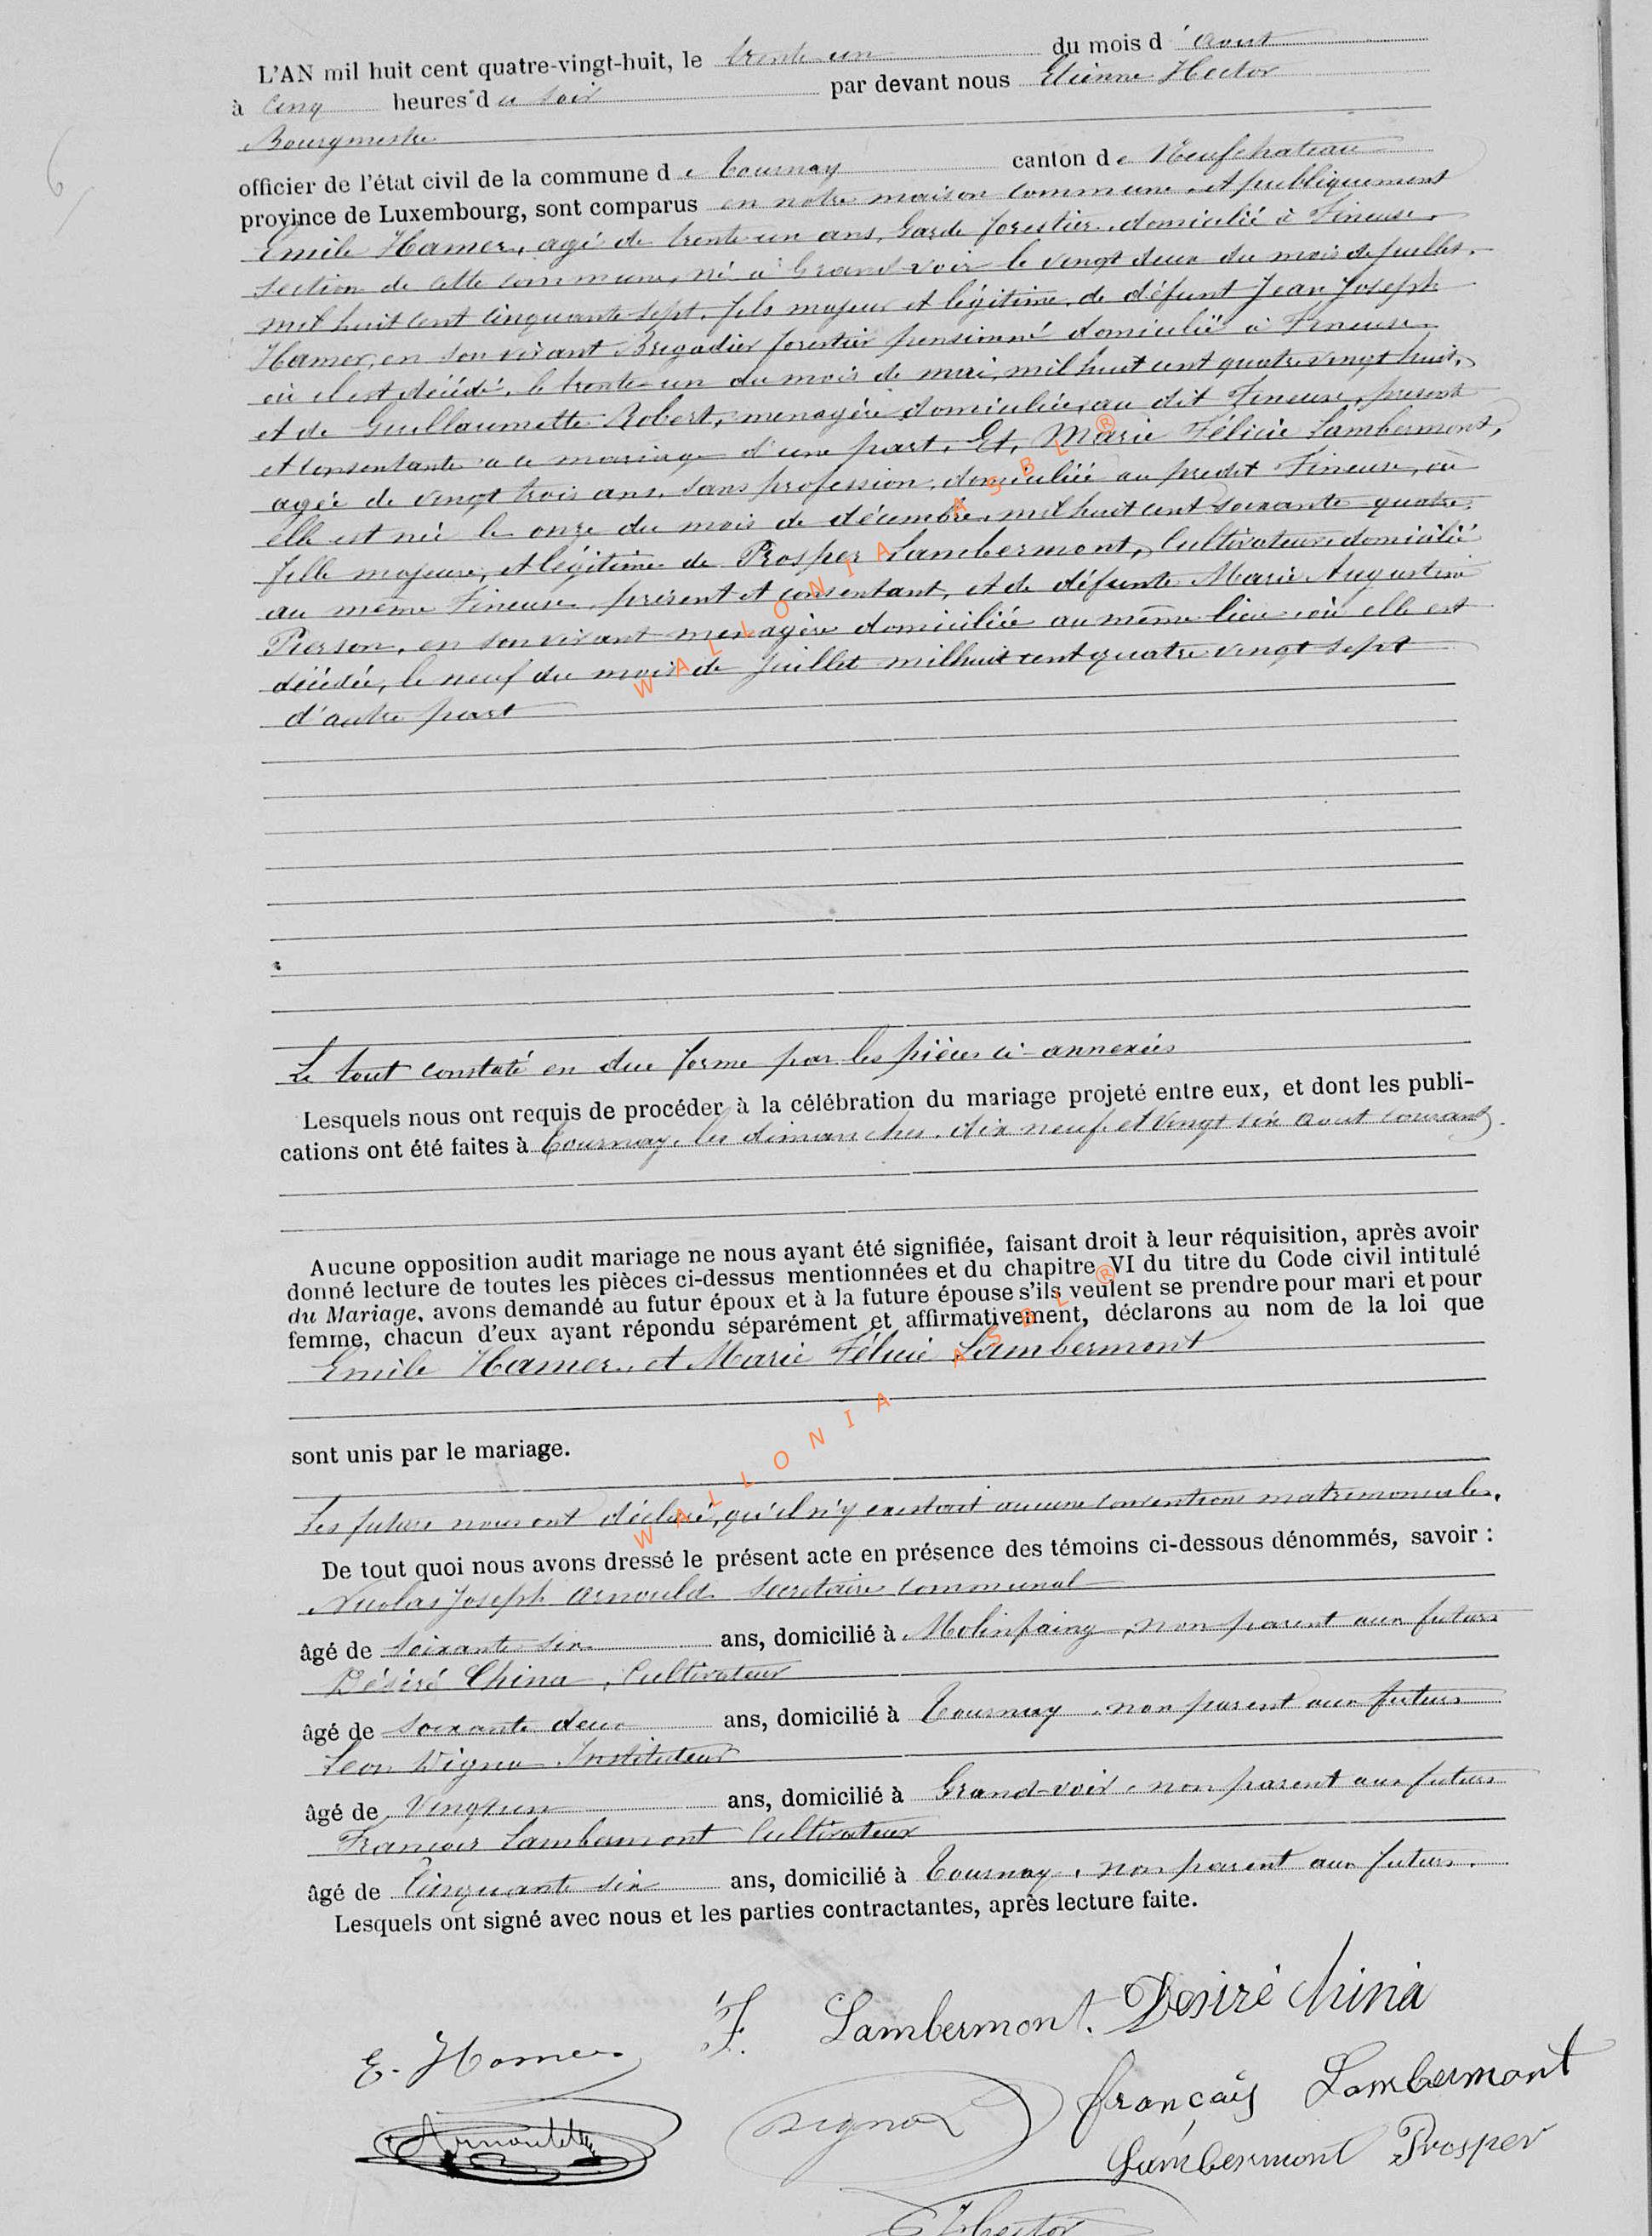 L'AN mil huit cent quatre-vingt-huit, le trente un du mois d'Aout
à Cinq heures du soir par devant nous Etienne Hector
Bourgmestre
officier de l'état civil de la commune de Tournay canton de Neufchateau
province de Luxembourg, sont comparus en notre maison commune et publiquement
Emile Hamer, agé de trente-un ans, Garde forestier, domicilié à Fineuse,
section de cette commune, né à Grand-voir le vingt deux du mois de juillet,
mil huit cent cinquante sept, fils majeur et légitime de défunt Jean Joseph
Hamer, en son vivant Brigadier forestier pensionné domicilié à Fineuse,
où il est décédé, le trente-un du mois de mai, mil huit cent quatre vingt huit,
et de Guillaumette Robert, menagère domiciliée, au dit Fineuse, présente
et consentante a ce mariage d'une part, Et, Marie Félicie Lambermont,
agée de vingt trois ans, sans profession, domiciliée au predit Fineuse, où
elle est née le onze du mois de décembre, mil huit cent soixante quatre,
fille majeure, et légitime de Prosper Lambermont, Cultivateur domicilié
au même Fineuse, présent et consentant, et de défunte Marie Augustine
Pierson, en son vivant menagère domiciliée au même lieu où elle est
décédée, le neuf du mois de Juillet mil huit cent quatre vingt sept
d'autre part
Le tout constaté en due forme par les pièces ci-annexées
Lesquels nous ont requis de procéder à la célébration du mariage projeté entre eux, et dont les publi-
cations ont été faites à Tournay, les dimanches, dix neuf et vingt six aout courant.
Aucune opposition audit mariage ne nous ayant été signifiée, faisant droit à leur réquisition, après avoir
donné lecture de toutes les pièces ci-dessus mentionnées et du chapitre VI du titre du Code civil intitulé
du Mariage, avons demandé au futur époux et à la future épouse s'ils veulent se prendre pour mari et pour
femme, chacun d'eux ayant répondu séparément et affirmativement, déclarons au nom de la loi que
Emile Hamer, et Marie Félicie Lambermont
sont unis par le mariage.
Les futurs nous ont déclaré, qu'il n'y existait aucune conventions matrimoniales.
De tout quoi nous avons dressé le présent acte en présence des témoins ci-dessous dénommés, savoir :
Nicolas Joseph Arnould secretaire communal
âgé de soixante six ans, domicilié à Molinfaing, non parent aux futurs
Désiré China, Cultivateur
âgé de soixante deux ans, domicilié à Tournay, non parent aux futurs
Leon Instituteur
âgé de Vingt un ans, domicilié à Grand-voir, non parent aux futurs
François Lambermont Cultivateur
âgé de Cinquante six ans, domicilié à Tournay, non parent aux futurs.
Lesquels ont signé avec nous et les parties contractantes, après lecture faite.
F. Lambermont. Desiré China
E. Hamer
français Lambermont
Arnould
Lambermont Prosper
E Hector
WALLONIA ASBL ®
WALLONIA ASBL ®